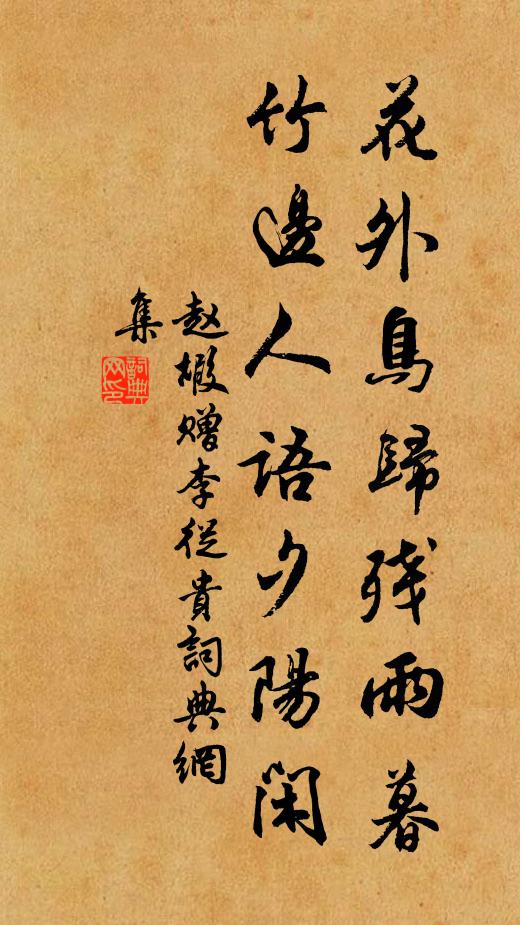 花外鳥歸残雨暮
竹邊人語夕陽閑
赵嘏贈李從貴詞典網
集
詞典
网印